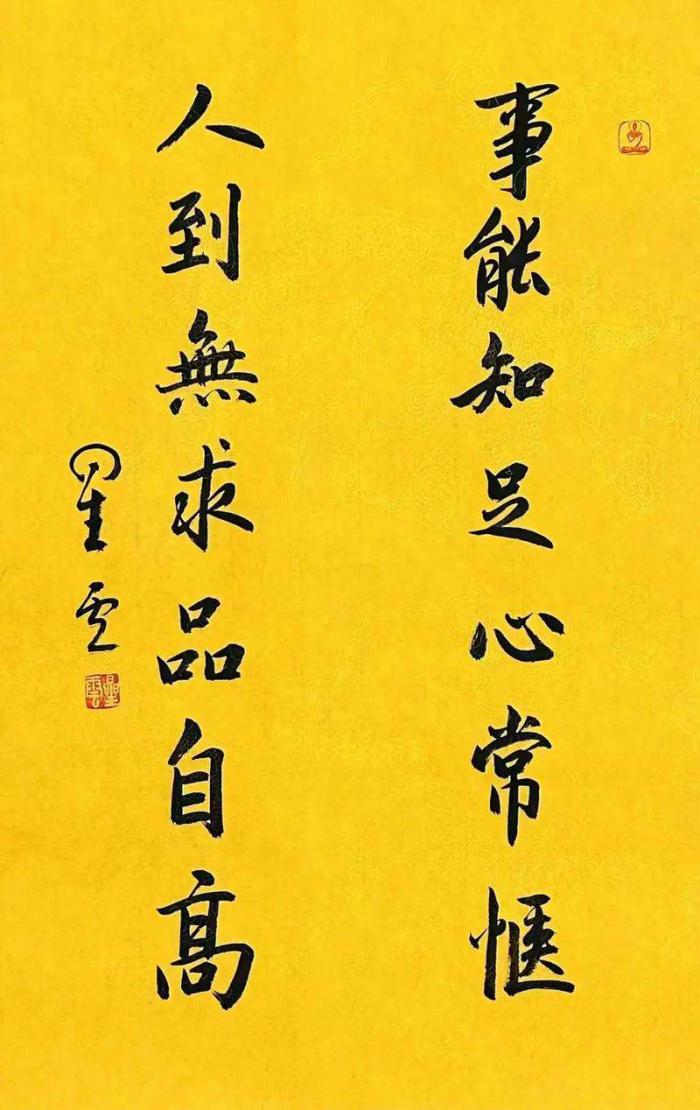 事能知足心常愜
人到無求品自高
星雲
星雲